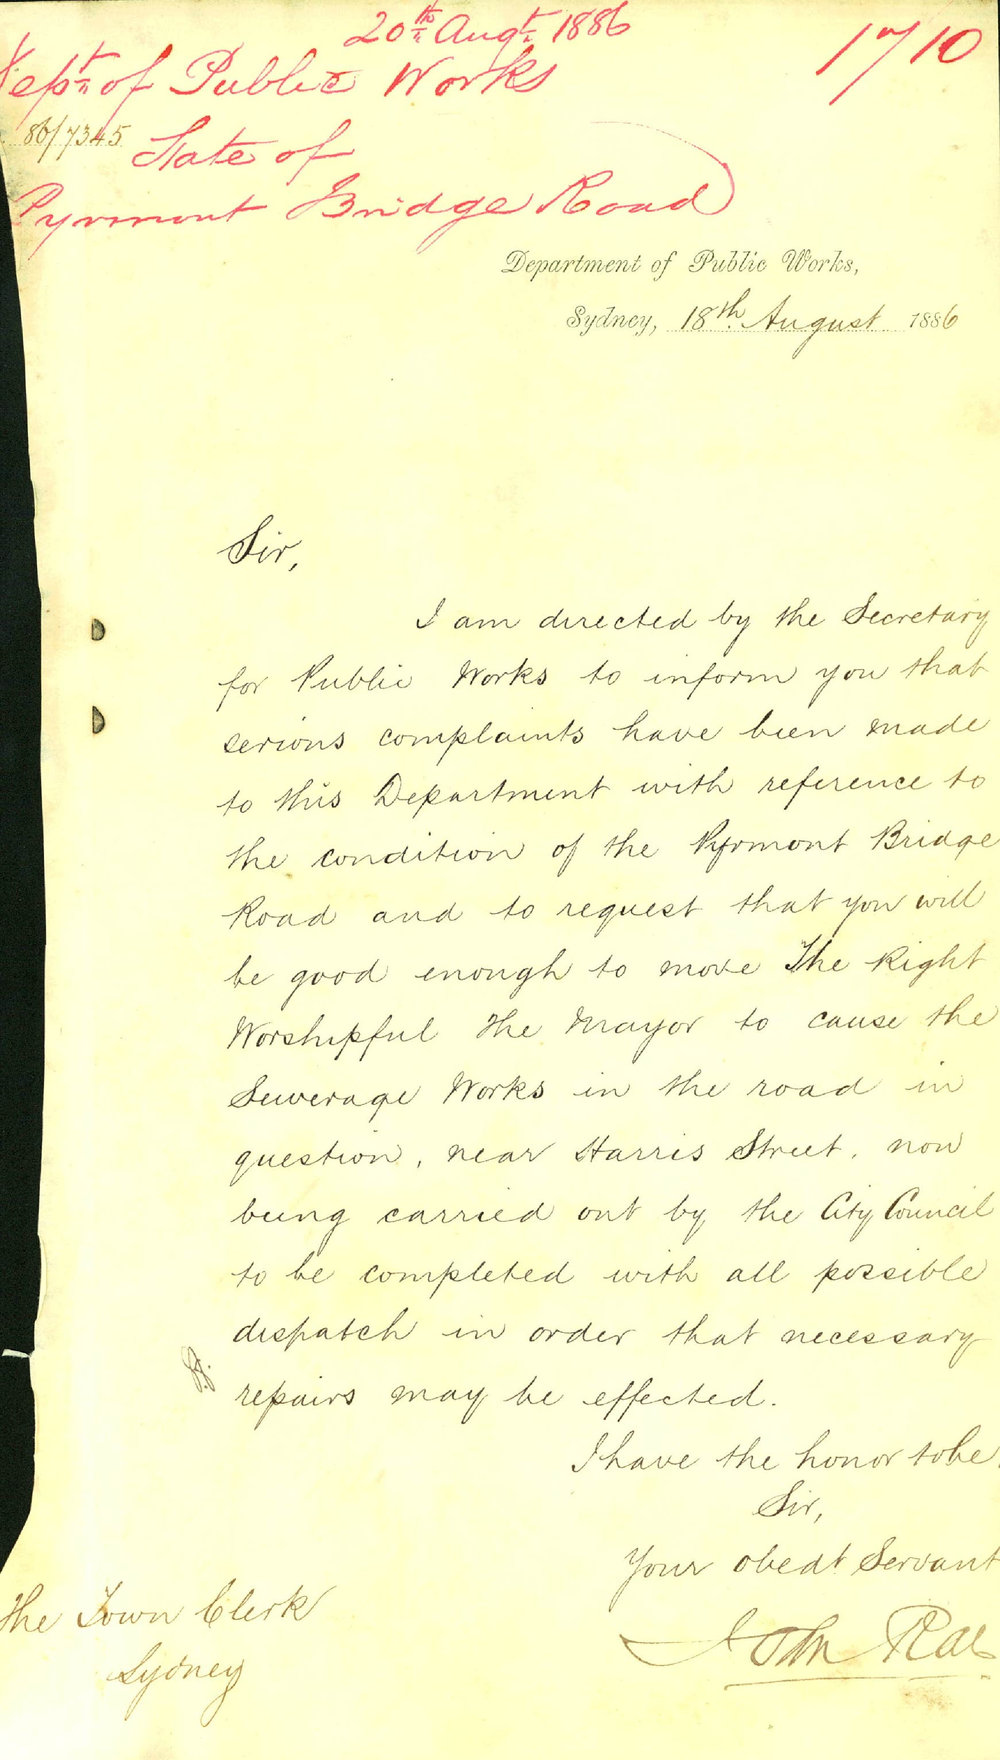 20th Augt. 1886
1710
Dept. of Public Works
86/7345
State of
Pyrmont Bridge Road
Department of Public Works,
Sydney, 18th August 1886
Sir,
I am directed by the Secretary
for Public Works to inform you that
serious complaints have been made
to this Department with reference to
the condition of the Pyrmont Bridge
Road and to request that you will
be good enough to move The Right
Worshipful the Mayor to cause the
Sewerage Works in the road in
question, near Harris Street, now
being carried out by the City Council
to be completed with all possible
dispatch in order that necessary
repairs may be effected.
I have the honor to be,
Sir,
Your obedt. Servant
John Rae
The Town Clerk
Sydney